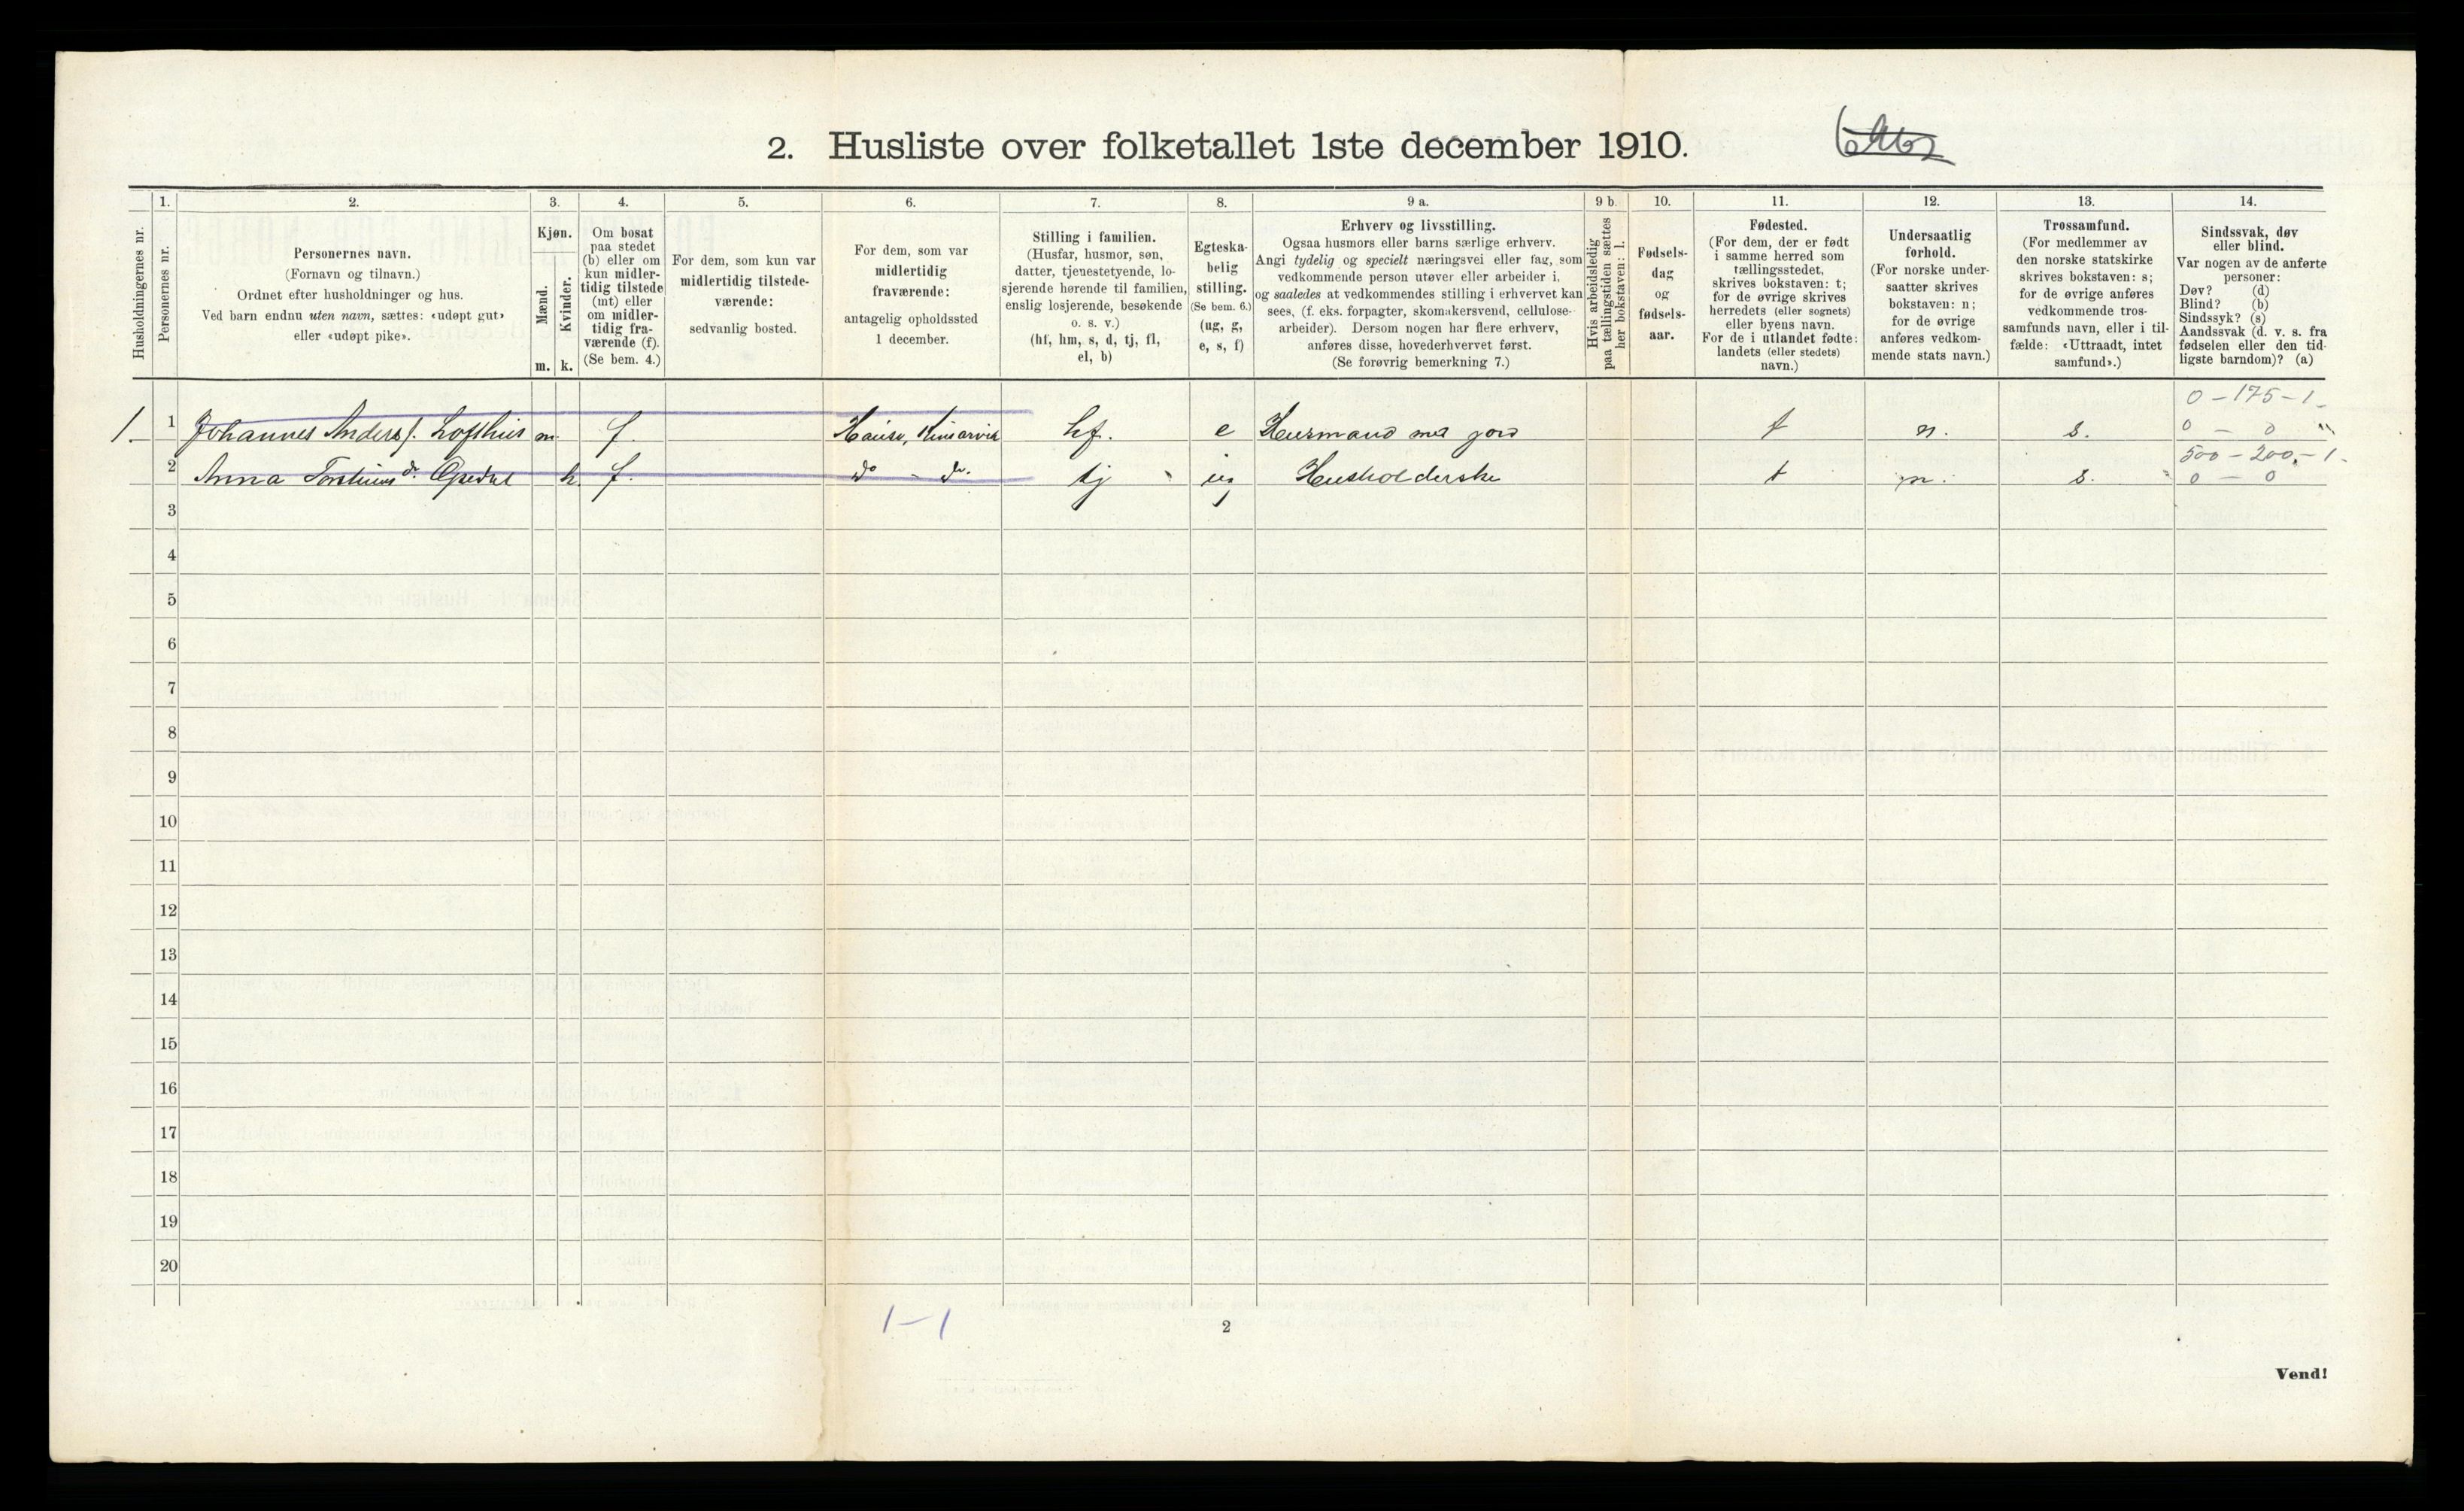 2. Husliste over folketallet 1ste december 1910.
Husholdningernes nr.
1.
Personernes nr.
2.
Personernes navn.
(Fornavn og tilnavn.)
Ordnet efter husholdninger og hus.
Ved barn endnu uten navn, sættes: «udøpt gut»
eller «udøpt pike».
3.
Kjøn.
Mænd.
Kvinder.
m. k.
4.
Om bosat
paa stedet
(b) eller om
kun midler-
tidig tilstede
(mt) eller
om midler-
tidig fra-
værende (f).
(Se bem. 4.)
5.
For dem, som kun var
midlertidig tilstede-
værende:
sedvanlig bosted.
6.
For dem, som var
midlertidig
fraværende:
antagelig opholdssted
1 december.
7.
Stilling i familien.
(Husfar, husmor, søn,
datter, tjenestetyende, lo-
sjerende hørende til familien,
enslig losjerende, besøkende
o. s. v.)
(hf, hm, s, d, tj, fl,
el, b)
8.
Egteska-
belig
stilling.
(Se bem. 6.)
(ug, g,
e, s, f)
9 a.
Erhverv og livsstilling.
Ogsaa husmors eller barns særlige erhverv.
Angi tydelig og specielt næringsvei eller fag, som
vedkommende person utøver eller arbeider i,
og saaledes at vedkommendes stilling i erhvervet kan
sees, (f. eks. forpagter, skomakersvend, cellulose-
arbeider). Dersom nogen har flere erhverv,
anføres disse, hovederhvervet først.
(Se forøvrig bemerkning 7.)
9 b.
Hvis arbeidsledig
paa tællingstiden sættes
her bokstaven: l.
10.
Fødsels-
dag
og
fødsels-
aar.
11.
Fødested.
(For dem, der er født
i samme herred som
tællingsstedet,
skrives bokstaven: t;
for de øvrige skrives
herredets (eller sognets)
eller byens navn.
For de i utlandet fødte:
landets (eller stedets)
navn.)
12.
Undersaatlig
forhold.
(For norske under-
saatter skrives
bokstaven: n;
for de øvrige
anføres vedkom-
mende stats navn.)
13.
Trossamfund.
(For medlemmer av
den norske statskirke
skrives bokstaven: s;
for de øvrige anføres
vedkommende tros-
samfunds navn, eller i til-
fælde: «Uttraadt, intet
samfund».)
14.
Sindssvak, døv
eller blind.
Var nogen av de anførte
personer:
Døv? (d)
Blind? (b)
Sindssyk? (s)
Aandssvak (d. v. s. fra
fødselen eller den tid-
ligste barndom)? (a)
0 - 175 - 1
1. 1 Johannes Anders s. Lofthus m f. Hause, Kinsarvik hf. e Husmand med jord t n. s. 0 - 0 "
500 - 200 - 1
2 Anna Torsteins dr. Opedal k. f. do - do. tj ug Husholderske t n. s. 0 - 0
3
4
5
6
7
8
9
10
11
12
13
14
15
16
17
18
19
20
1-1
2
Vend!